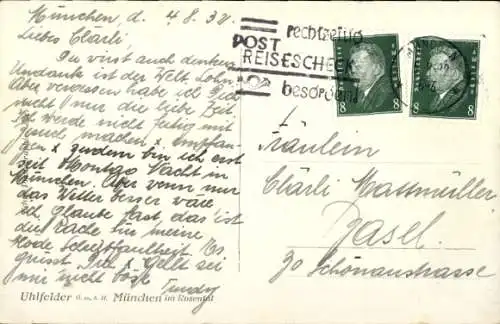 München, d. 4.8.32.
Liebes Clärli,
Du wirst auch denken
Undank ist der Welt Lohn,
Aber vergessen habe ich Dich
nicht! nur die liebe Zeit.
Ich werde nicht fertig mit
Besuch machen x empfan-
gen x zudem bin ich erst
seit Montag Nacht in
München. Aber wenn nur
das Wetter besser wäre
ich glaube fast, das ist
die Rache für meine
Schreibfaulheit. Es
grüsst Dich x Gellt sei
mir nicht böse
Uhlfelder G.m.b.H. München im Rosental
rechtzeitig
POST
REISESCHECK
besorgen!
8 8
8 8
Fräulein
Clärli Mattmüller
Basel.
30 Schönaustrasse